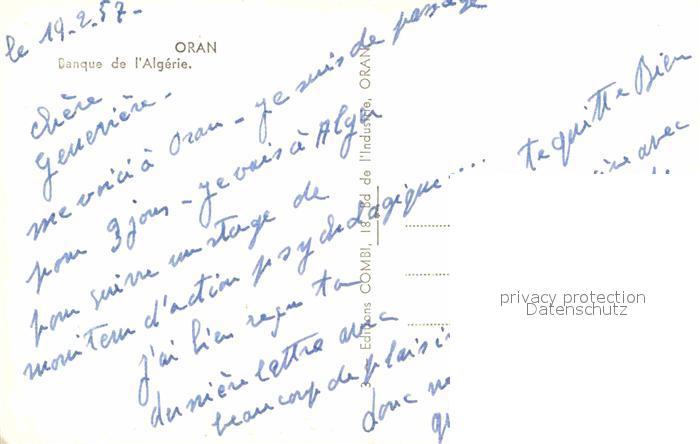 le 19.2.57-
ORAN
Banque de l'Algérie.
chère
Geneviève -
me voici à Oran - je suis de passage
pour 3 jours - je vais à Alger
pour suivre un stage de
moniteur d'action psychologique....
j'ai bien reçu ta
dernière lettre avec
beaucoup de plaisi
donc
te quitte Bien
avec
Editions COMBI, 18, Bd de l'Industrie, ORAN
privacy protection
Datenschutz